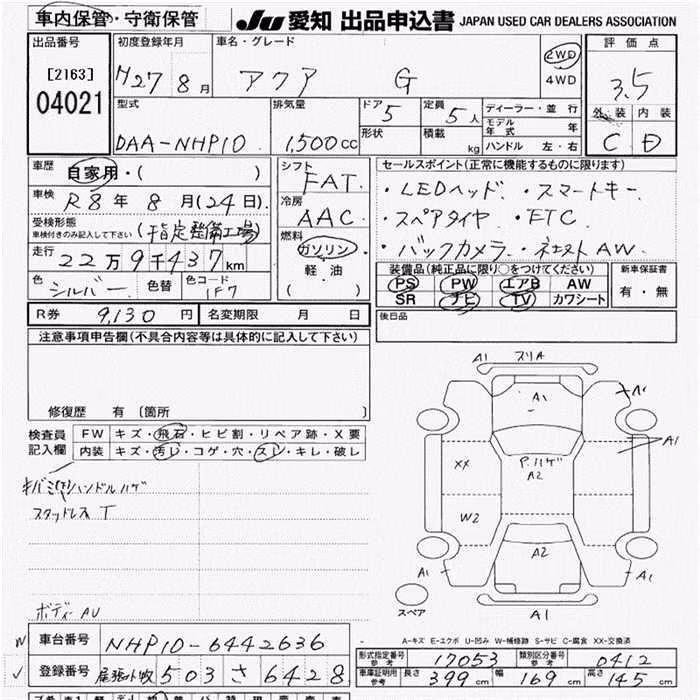 車内保管・守衛保管 JU 愛知 出品申込書 JAPAN USED CAR DEALERS ASSOCIATION
出品番号 初度登録年月 車名・グレード 2WD 4WD 評価点
[2163] 04021 H27年8月 アクア G 3.5
型式 排気量 ドア 5 定員 5人 ディーラー・並行 外装 内装
DAA-NHP10 1,500cc 形状 積載 kg モデル年式 年 C D
ハンドル 左・右
車歴 自家用・( ) シフト FAT セールスポイント(正常に機能するものに限ります)
車検 R8年8月(24日) 冷房 AAC ・LEDヘッド ・スマートキー
受検形態 車検付きのみ記入して下さい (指定整備工場) ・スペアタイヤ ・ETC
走行 22万9千437km 燃料 ガソリン・軽油 ( ) ・バックカメラ AW
色 シルバー 色替 色コード 1F7 装備品(純正品に限り○をつけてください) 新車保証書
PS PW エアB AW 有・無
SR ナビ TV カワシート
R券 9,130円 名変期限 月 日 後日品
注意事項申告欄(不具合内容等は具体的に記入して下さい)
修復歴 有 [箇所 ]
検査員記入欄 FW キズ・飛石・ヒビ割・リペア跡・X要
内装 キズ・汚レ・コゲ・穴・スレ・キレ・破レ
ハンドルハゲ
スタッドレス T
ボディー AU
A1 スリA
A1 A1
A1
XX P.ハゲ A2
W2
A2
A1 A1
スペア A1
A-キズ E-エクボ U-凹み W-補修跡 S-サビ C-腐食 XX-交換済
車台番号 NHP10-6442636 形式指定番号 参考 17053 類別区分番号 参考 0412
登録番号 尾張小牧 503 さ 6428 車庫証明用 参考 長さ 399cm 幅 169cm 高さ 145cm